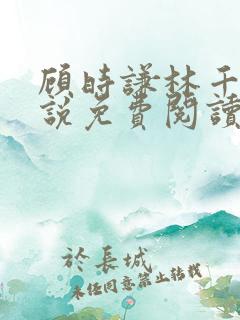 顾時謙林千
說免費閱讀
於長城
未经同意禁止转载